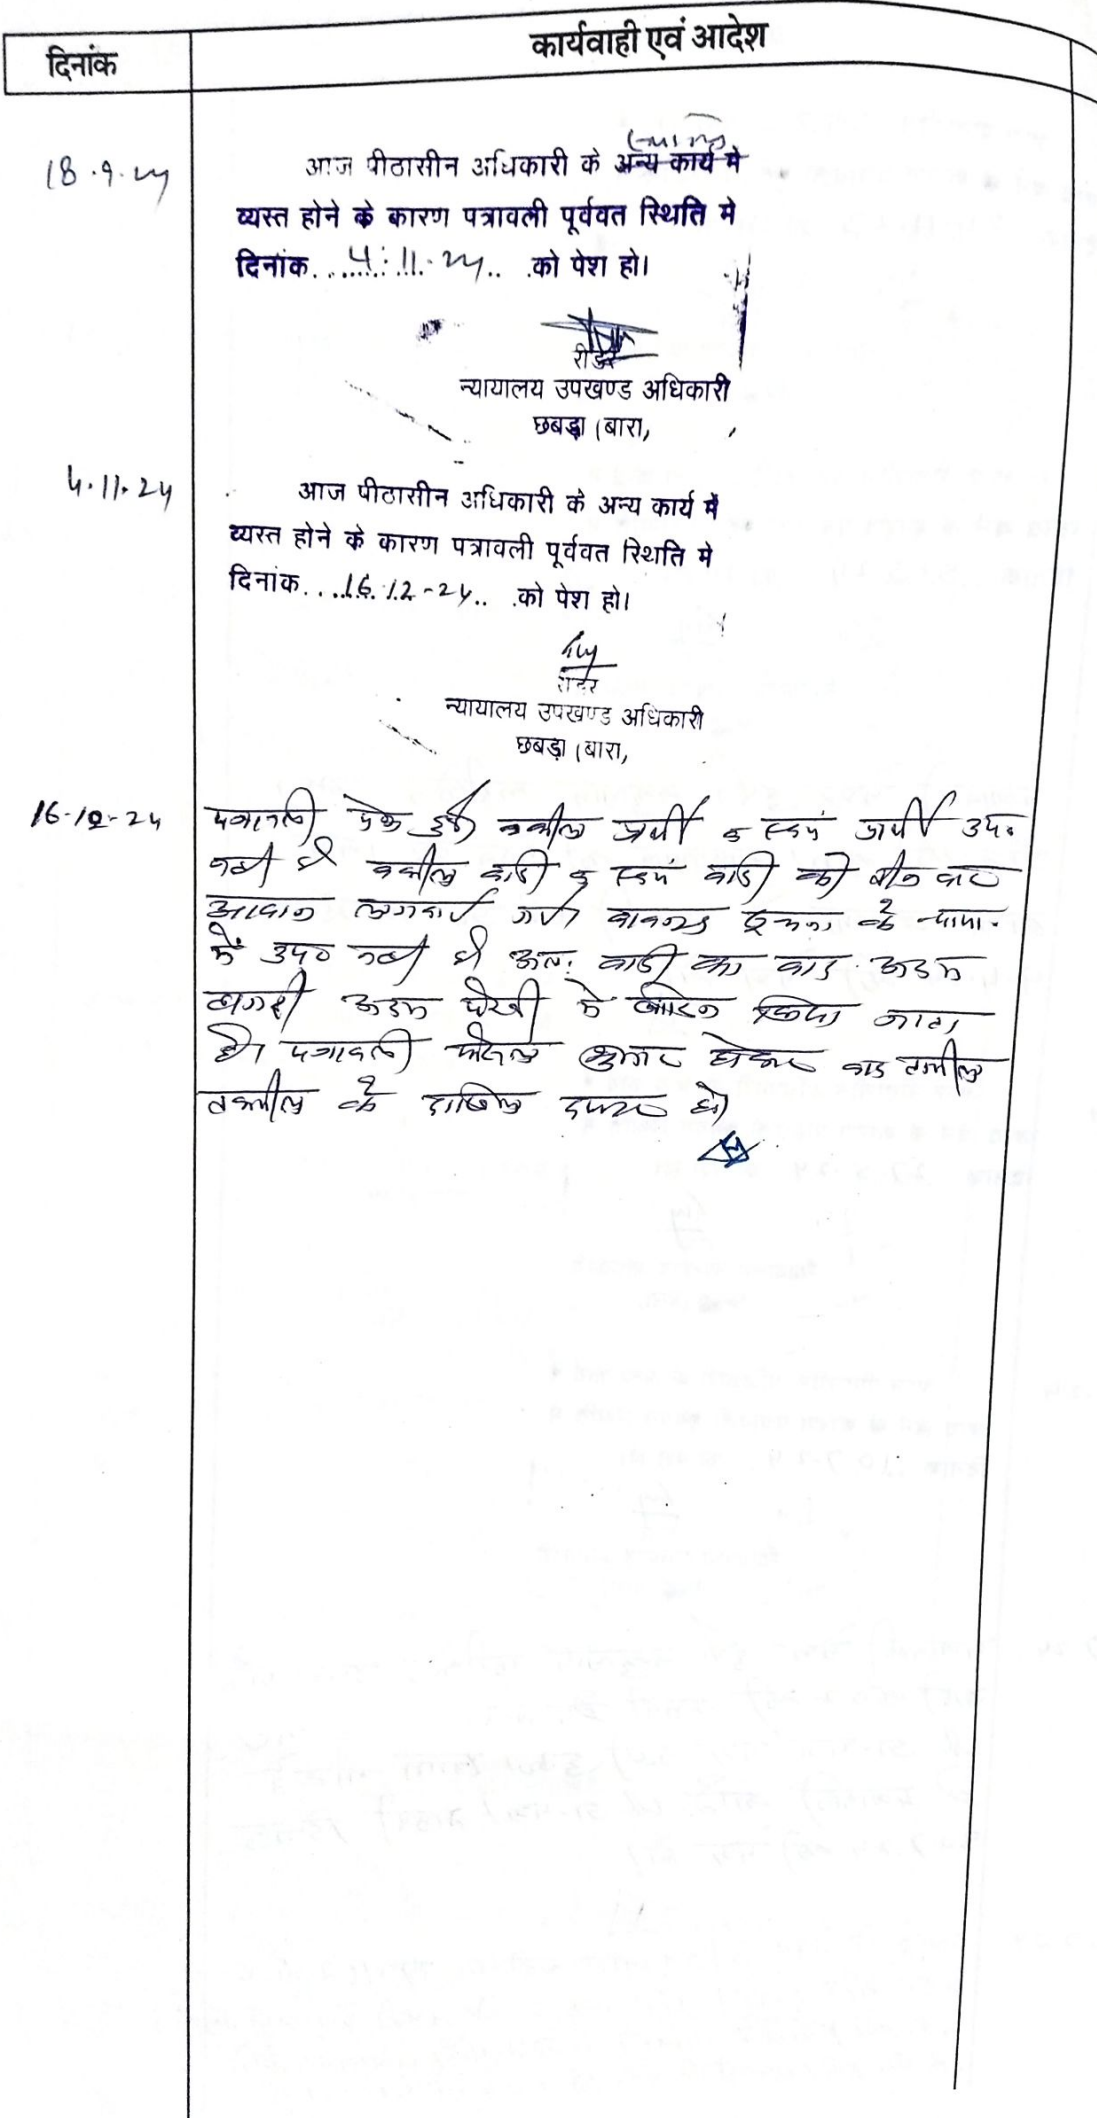 दिनांक
कार्यवाही एवं आदेश
18.9.24
आज पीठासीन अधिकारी के अन्य कार्य मे
व्यस्त होने के कारण पत्रावली पूर्ववत स्थिति मे
दिनांक......4.11.24.. .को पेश हो।
रीडर
न्यायालय उपखण्ड अधिकारी
छबड़ा (बारा,
4.11.24
आज पीठासीन अधिकारी के अन्य कार्य में
व्यस्त होने के कारण पत्रावली पूर्ववत स्थिति मे
दिनांक.....16.12-24.. .को पेश हो।
रीडर
न्यायालय उपखण्ड अधिकारी
छबड़ा (बारा,
16-12-24
पत्रावली पेश हुई। वकील प्रार्थी व स्वयं प्रार्थी उप०
नही है वकील वादी व स्वयं वादी को तीन बार
आवाज लगवाई गयी बावजूद सूचना के न्याया.
में उप० नही है अतः वादी का वाद अदम
हाजरी अदम पैरवी में खारिज किया जाता
है। पत्रावली फैसल शुमार होकर बाद तकमील
तकमील के दाखिल दफ्तर हो।